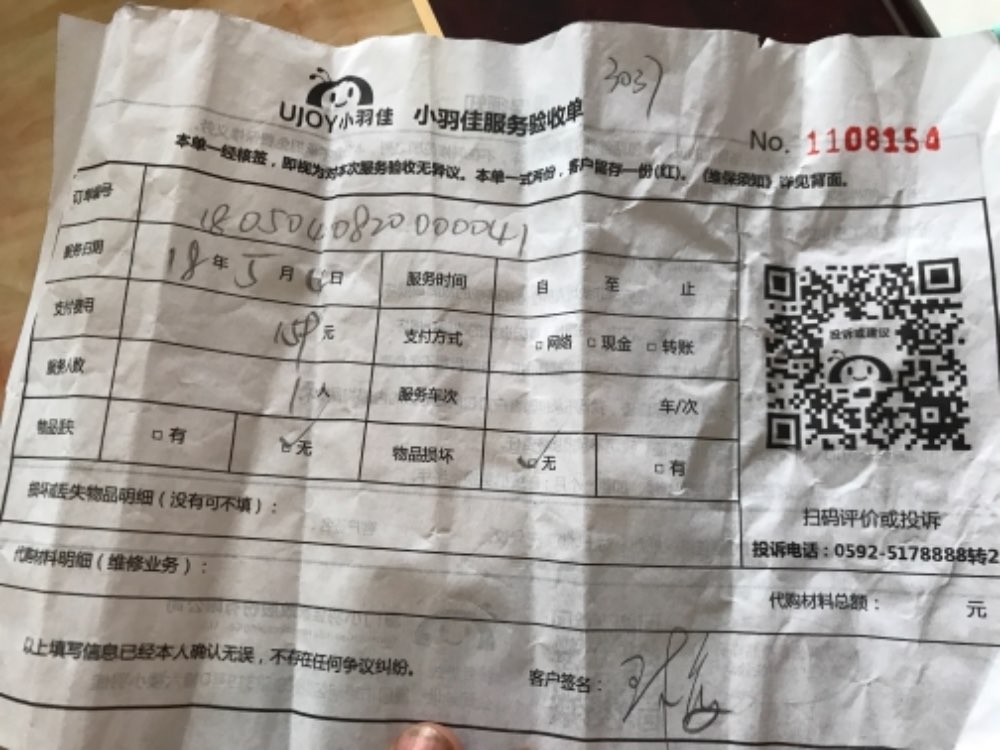 3037
UJOY小羽佳 小羽佳服务验收单
No. 1108154
本单一经核签，即视为对本次服务验收无异议。本单一式两份，客户留存一份(红)。《维保须知》详见背面。
订单编号 1805040820000041
服务日期 18年5月6日 服务时间 自 至 止
支付费用 159元 支付方式 □网络 □现金 □转账
服务人数 1人 服务车次 车/次
物品丢失 □有 ☑无 物品损坏 ☑无 □有
投诉或建议
损坏或丢失物品明细（没有可不填）：
扫码评价或投诉
投诉电话：0592-5178888转2
代购材料明细（维修业务）：
代购材料总额： 元
以上填写信息已经本人确认无误，不存在任何争议纠纷。
客户签名：